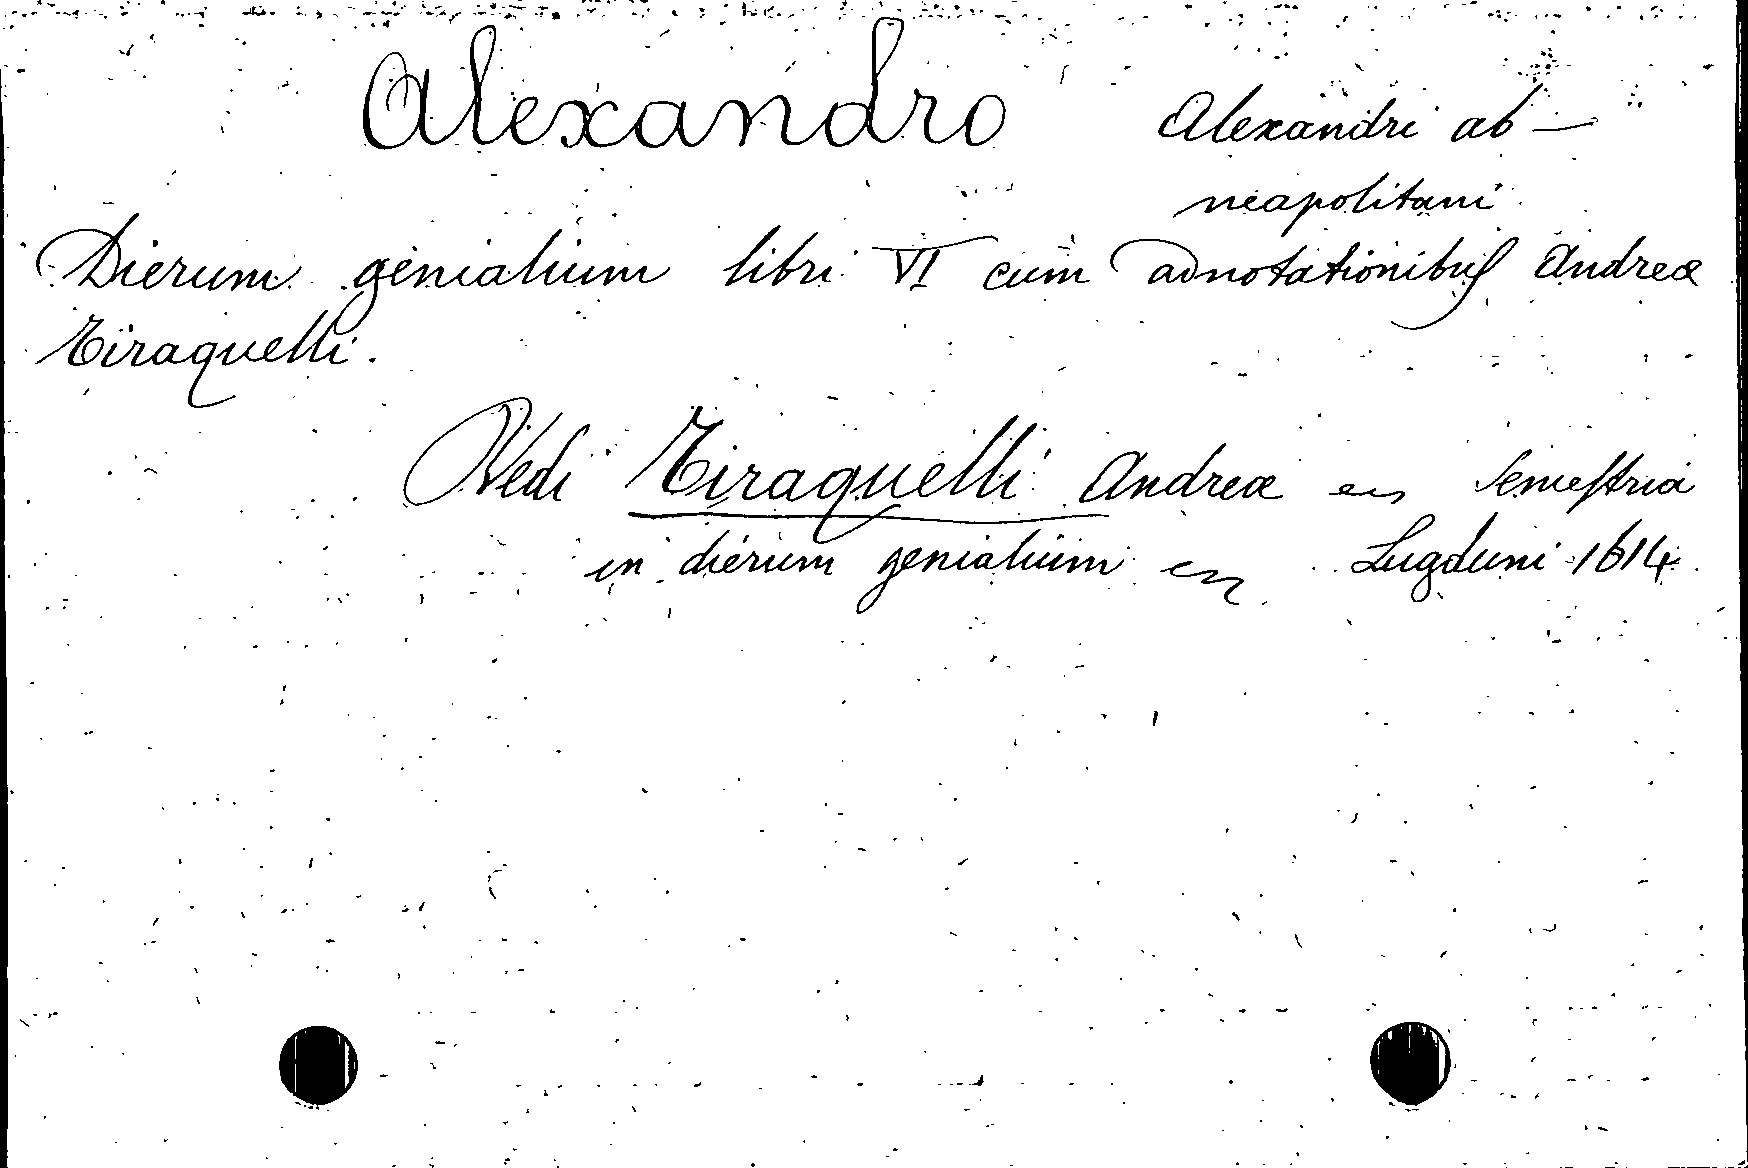 Alexandro Alexandri ab —
neapolitani
Dierum genialium libri VI cum adnotationibus Andreæ
Tiraquelli.
Vedi Tiraquelli Andreæ en Semestria
in dierum genialium en Lugduni 1614